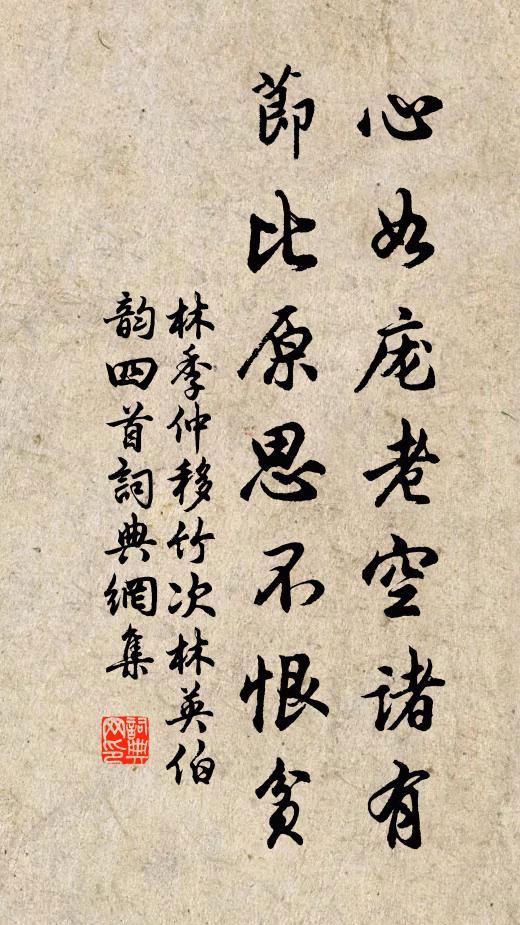 心如庞老空諸有
節比原思不恨貧
林季仲移竹次林英伯
韵四首詞典網集
詞典
网印